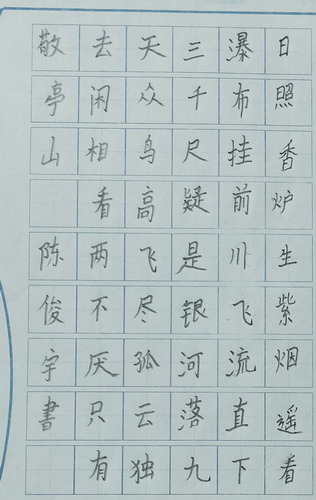 日照香炉生紫烟遥看
瀑布挂前川飞流直下
三千尺疑是银河落九
天众鸟高飞尽孤云独
去闲相看两不厌只有
敬亭山 陈俊宇書